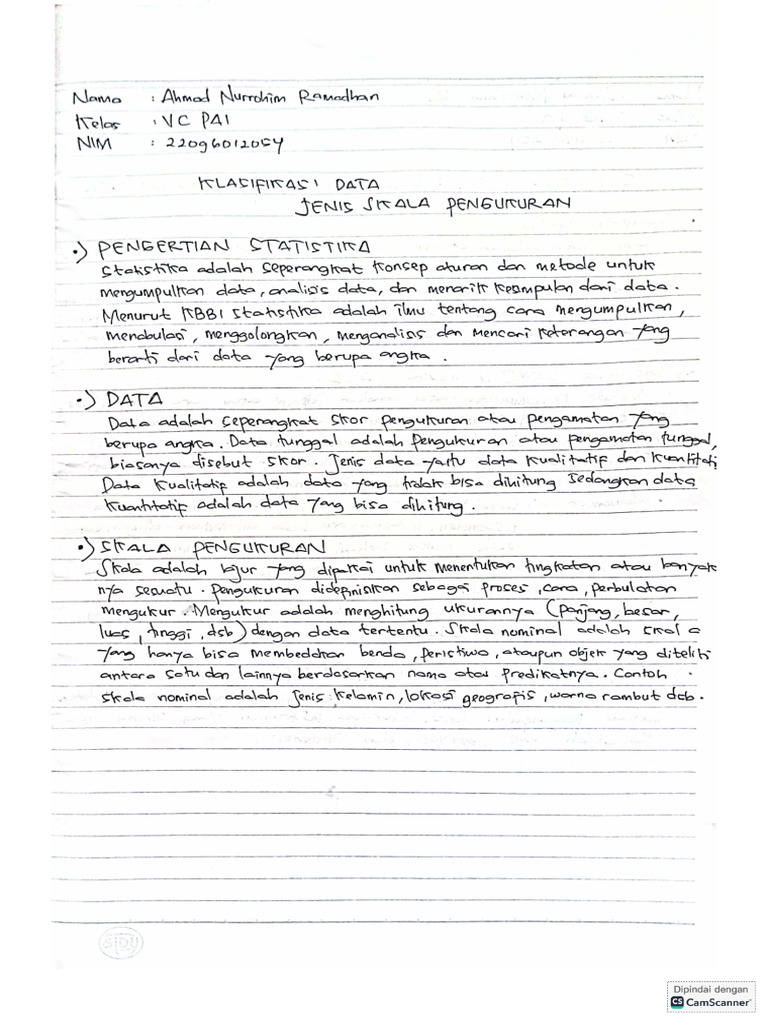 Nama : Ahmad Nurrohim Ramadhan
Kelas : VC PAI
NIM : 22096012054
KLASIFIKASI DATA
JENIS SKALA PENGUKURAN
•) PENGERTIAN STATISTIKA
Statistika adalah seperangkat konsep aturan dan metode untuk
mengumpulkan data, analisis data, dan menarik kesimpulan dari data.
Menurut KBBI statistika adalah ilmu tentang cara mengumpulkan,
menabulasi, menggolongkan, menganalisis dan mencari keterangan yang
berarti dari data yang berupa angka.
•) DATA
Data adalah seperangkat skor pengukuran atau pengamatan yang
berupa angka. Data tunggal adalah pengukuran atau pengamatan tunggal,
biasanya disebut skor. Jenis data yaitu data kualitatif dan kuantitati
Data kualitatif adalah data yang tidak bisa dihitung sedangkan data
kuantitatif adalah data yang bisa dihitung.
•) SKALA PENGUKURAN
Skala adalah lajur yang dipakai untuk menentukan tingkatan atau banyak
nya sesuatu. Pengukuran didefinisikan sebagai proses, cara, perbuatan
mengukur. Mengukur adalah menghitung ukurannya (panjang, besar,
luas, tinggi, dsb) dengan data tertentu. Skala nominal adalah skala
yang hanya bisa membedakan benda, peristiwa, ataupun objek yang diteliti
antara satu dan lainnya berdasarkan nama atau predikatnya. Contoh
skala nominal adalah jenis kelamin, lokasi geografis, warna rambut dsb.
SIDU
Dipindai dengan
CS CamScanner